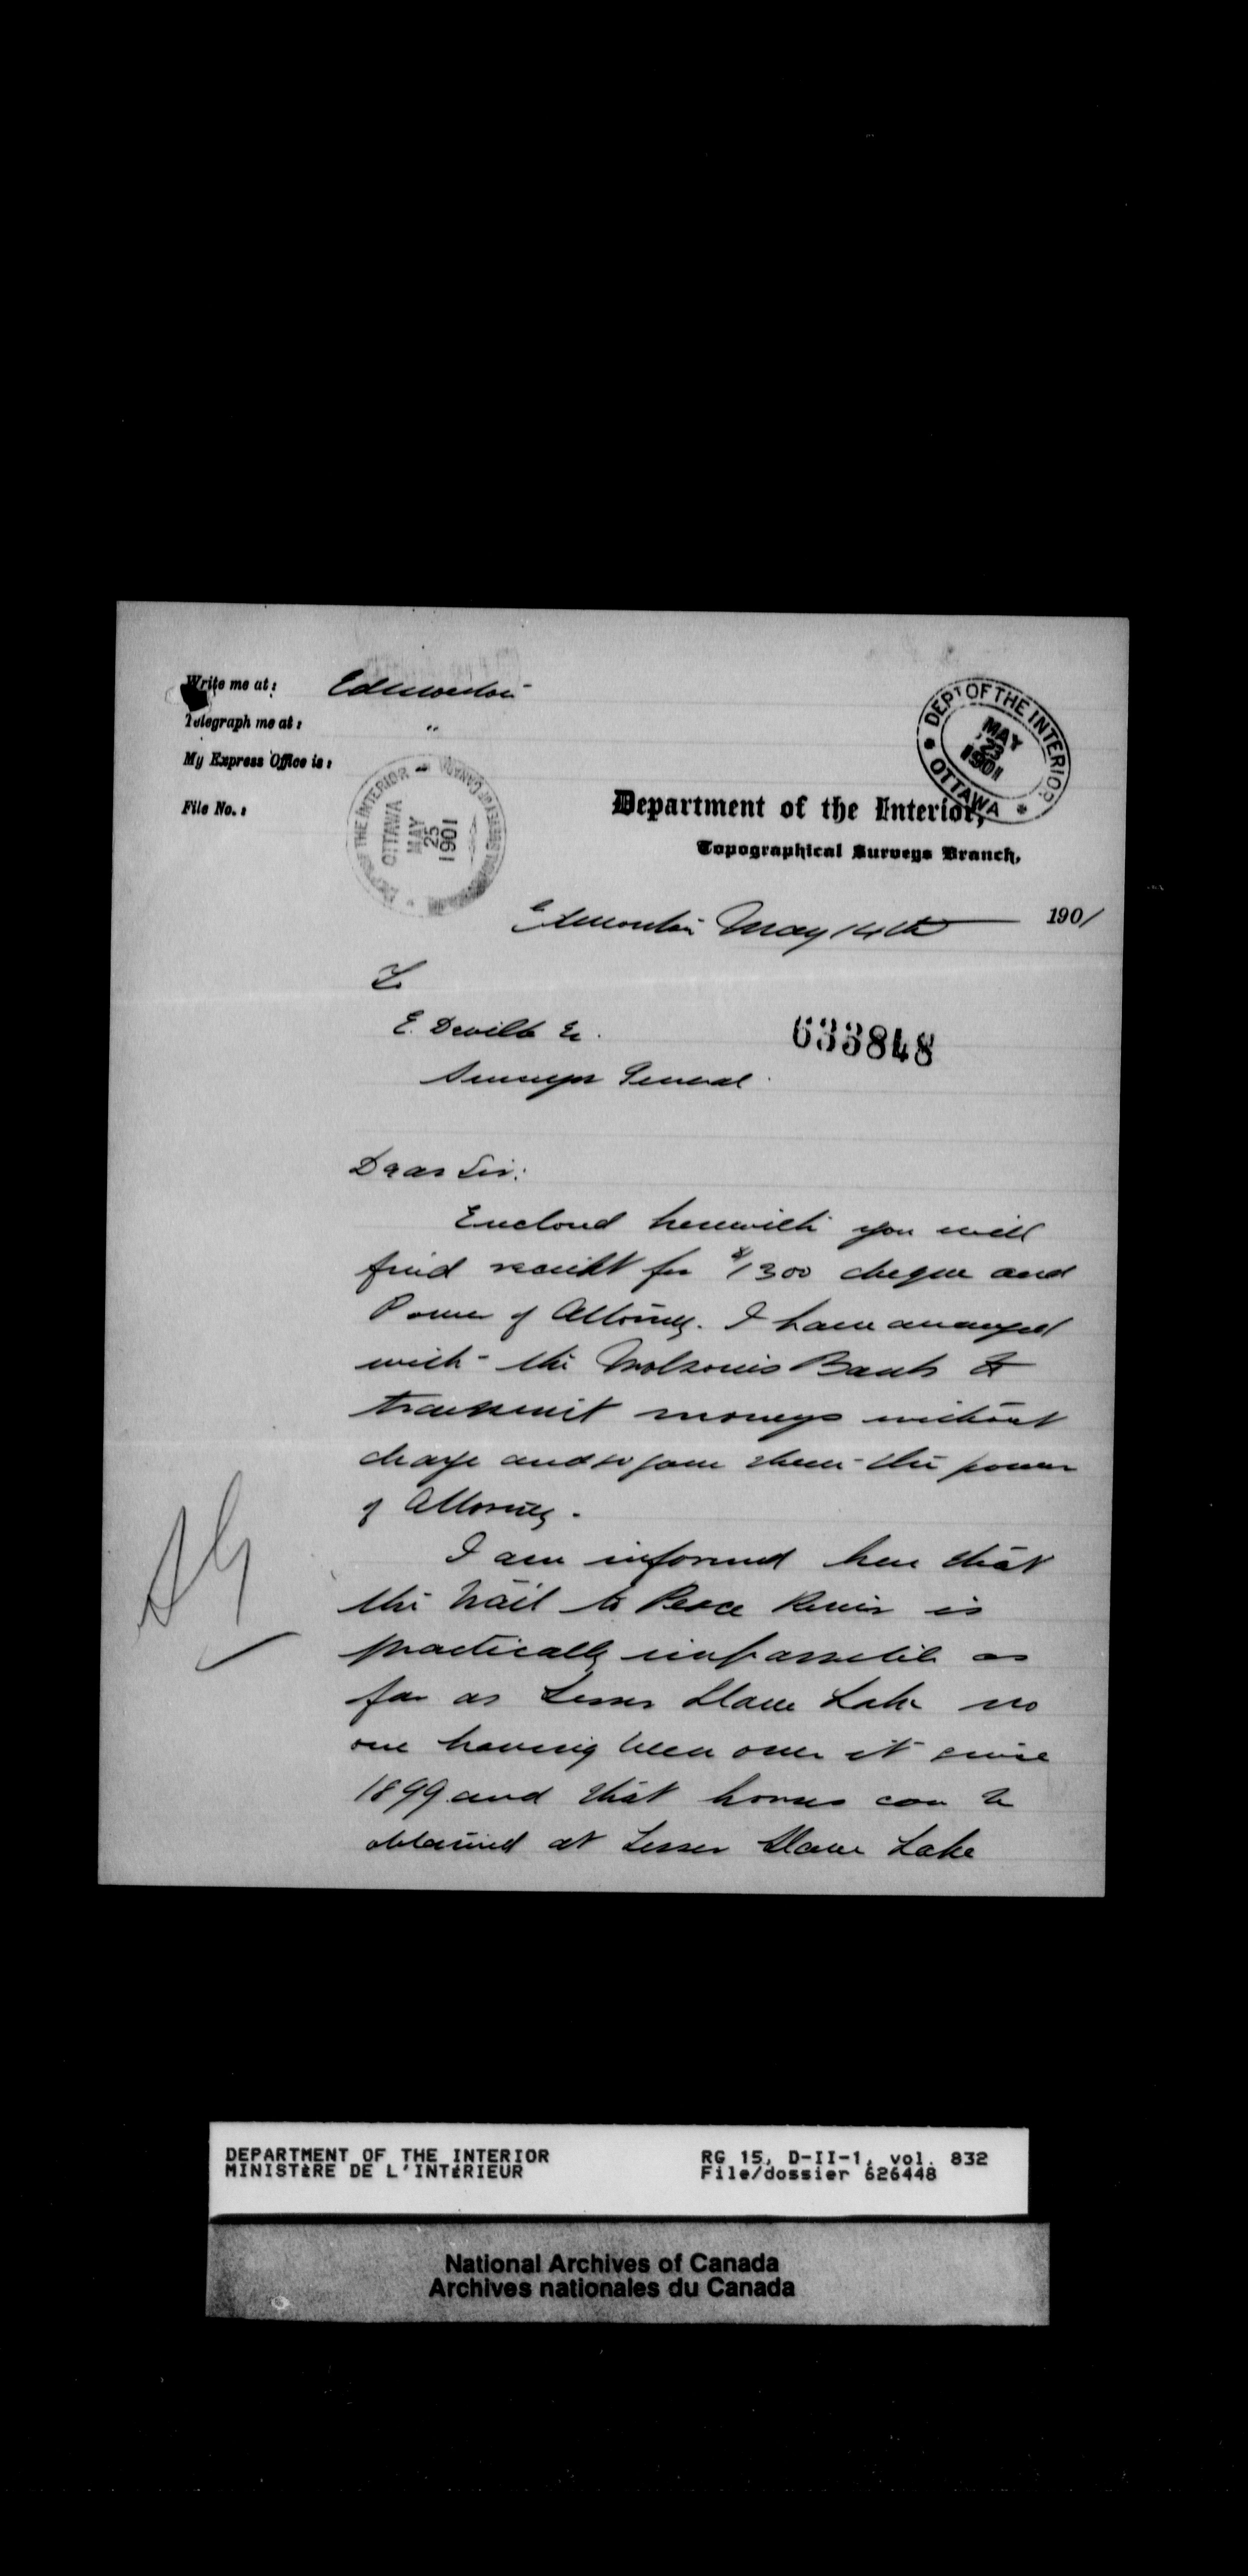 Write me at: Edmonton
Telegraph me at: "
My Express Office is:
File No.:
DEPT OF THE INTERIOR
MAY
23
1901
OTTAWA
THE INTERIOR
OTTAWA
MAY
25
1901
Department of the Interior,
Topographical Surveys Branch,
Edmonton May 14th 1901
To
E. Deville Es.
Surveyor General.
633848
Dear Sir:
Enclosed herewith you will
find receipt for $1300 cheque and
Power of Attorney. I have arranged
with the Molsons Bank to
transmit moneys without
charge and so gave them the power
of Attorney.
I am informed here that
the trail to Peace River is
practically impassible as
far as Lesser Slave Lake no
one having been over it since
1899 and that horses can be
obtained at Lesser Slave Lake
DEPARTMENT OF THE INTERIOR
MINISTÈRE DE L'INTÉRIEUR
RG 15, D-II-1, vol. 832
File/dossier 626448
National Archives of Canada
Archives nationales du Canada